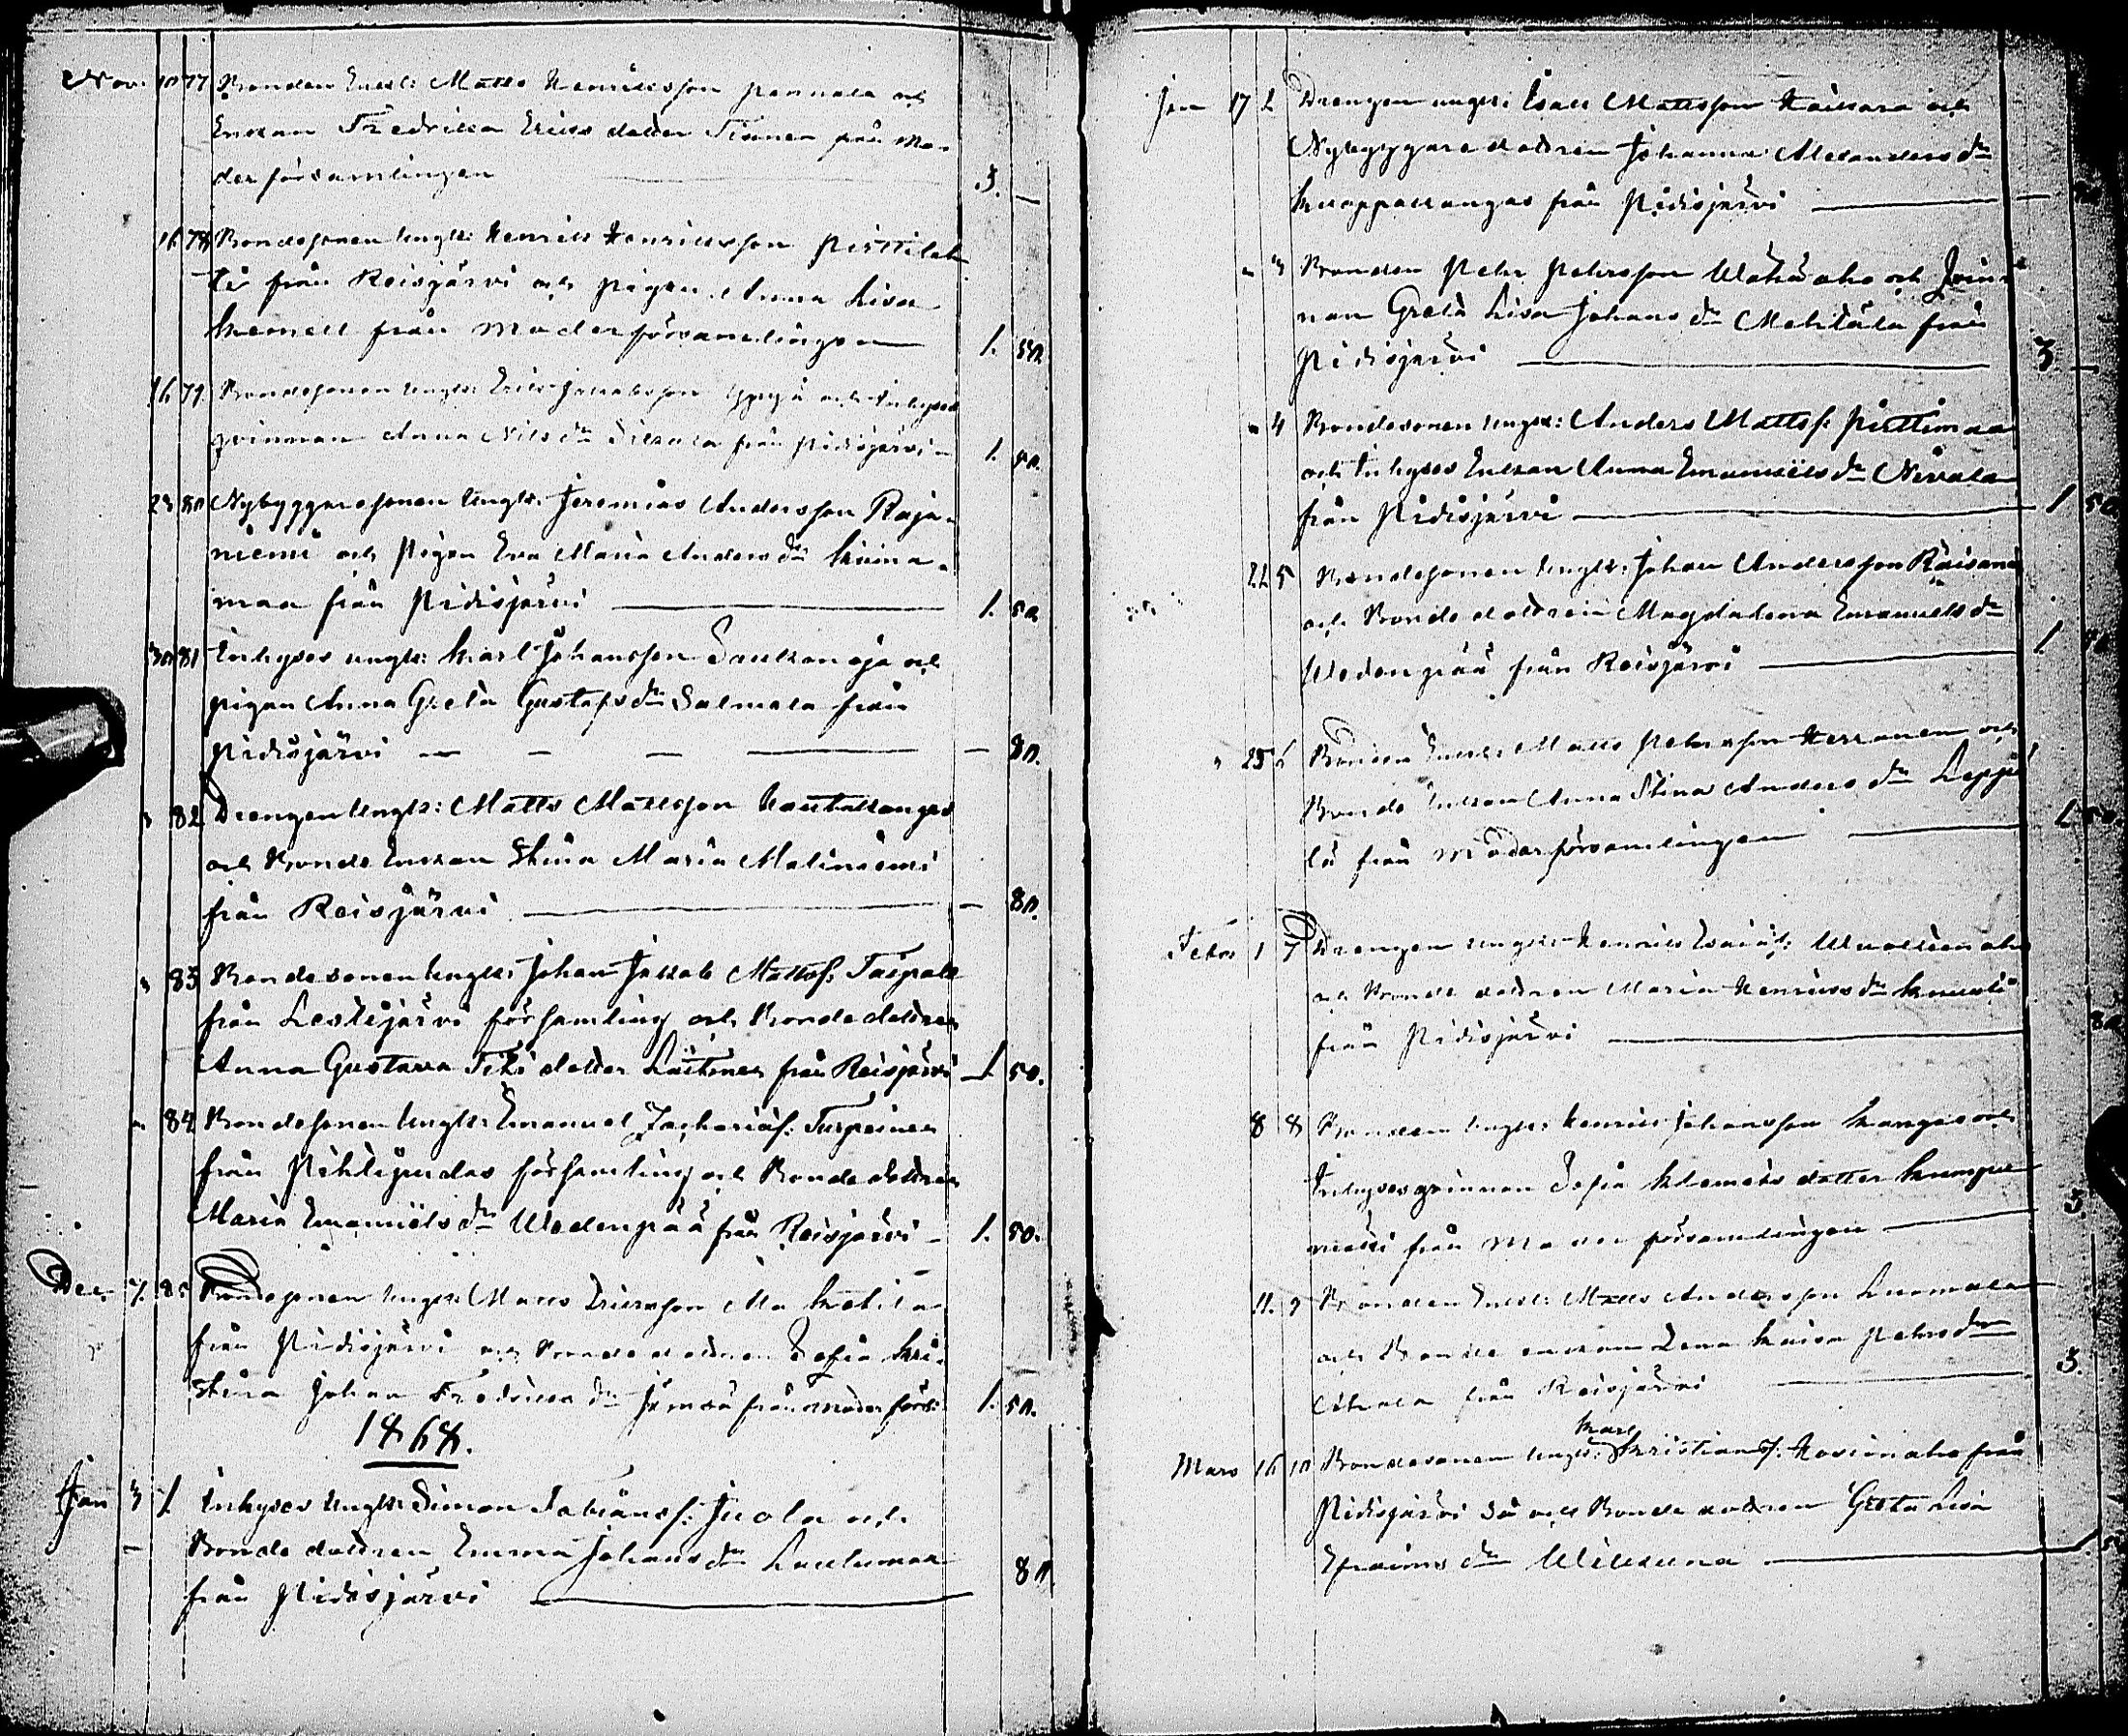 Nov. 10 77 Bonden Enkl: Matts Henriksson Pennala och
Enkan Fredrika Eriks dotter Tiainen från Mo-
derförsamlingen 3. —
16 78 Bondesonen Ungk: Henrik Henriksson Pirttilah-
ti från Reisjärvi och pigan Anna Lisa
Kemell från Moderförsamlingen 1. 50.
16 79. Bondesonen Ungk: Erik Jakobsson och Inhyses
qvinnan Anna Nils dr från Pidisjärvi — 1. 50.
23 80 Nybyggaresonen Ungk: Jeremias Andersson Raja-
niemi och Pigan Eva Maria Anders dr Kuina-
maa från Pidisjärvi — 1. 50
30 81 Inhyses ungk: Karl Johansson Saukonoja och
pigan Anna Greta Gustafs dr Salmela från
Pidisjärvi — — — — 80.
" 82 Drengen Ungk: Matts Mattsson Hautakangas
och Bonde Enkan Stina Maria Matiniemi
från Reisjärvi — — 80.
" 83 Bondesonen Ungk: Johan Jakob Mattss: Taipale
från Lestijärvi församling och Bonde dottren
Anna Gustava dotter Laitinen från Reisjärvi 1 50.
" 84 Bondesonen Ungk: Emanuel Zachariæs: Turpeinen
från Pihtipudas församling och Bonde dottren
Maria Emanuels dr Uodenpää från Reisjärvi — 1. 50.
Dec. 7. 85 Bondesonen Ungk: Matts Eriksson
från Pidisjärvi och Bonde dottren Sofia Kri-
stina Johan Fredriks dr Jämsä från moder förs: 1. 50.
1868.
Jan 3 1. Inhyses Ungk: Simon Juola och
Bonde dottren Emma Johans dr Lautumaa
från Pidisjärvi — 80.
Jan 17 2 Drengen ungk: Isak Mattsson Kaikara och
Nybyggare dottren Johanna Alexanders dr
Knappakangas från Pidisjärvi — —
" 3 Bonden Pehr Pehrsson Wähäaho och Qvin-
nan Greta Lisa Johans dr Mehtälä från
Pidisjärvi — 3. —
" 4 Bondesonen ungk: Anders Mattss: Pirttimaa
och Inhyses Enkan Anna Emanuels dr Nivala
från Pidisjärvi — 1 50
22 5 Bondesonen Ungk: Johan Andersson Räisänen
och Bonde dottren Magdalena Emanuels dr
Uodenpää från Reisjärvi — 1.
" 25 6 Bonden Enkl: Matts Pehrsson Herranen och
Bonde Enkan Anna Stina Anders dr Leppä-
lä från Moderförsamlingen — 1. 50.
Febr 1 7 Drengen ungk: Henrik Esaiæs:
och Bonde dottren Maria Henriks dr
från Pidisjärvi — 80
8 8 Bonden Ungk: Henrik Johansson Kangas och
Inhyses qvinnan Sofia Klemets dotter Kumpu-
mäki från Moder församlingen — 3.
11. 9 Bonden Enkl: Matts Andersson Luomala
och Bonde enkan Lena Kaisa Pehrs dr
från Reisjärvi — 3.
Karl
Mars 16 10 Bondesonen Ungk: Kristians: från
Pidisjärvi så och Bonde dottren Greta Lisa
Efraims dr —